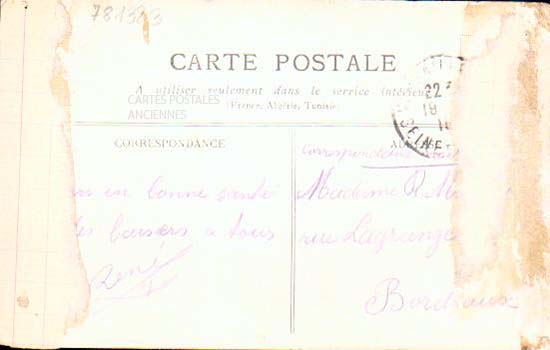 781333
CARTE POSTALE
A utiliser seulement dans le service intérieur
(France, Algérie, Tunisie)
CARTES POSTALES
ANCIENNES
22
19
SEINE
CORRESPONDANCE
en bonne santé
baisers a tous
René
Madame R
rue Lagrange
Bordeaux